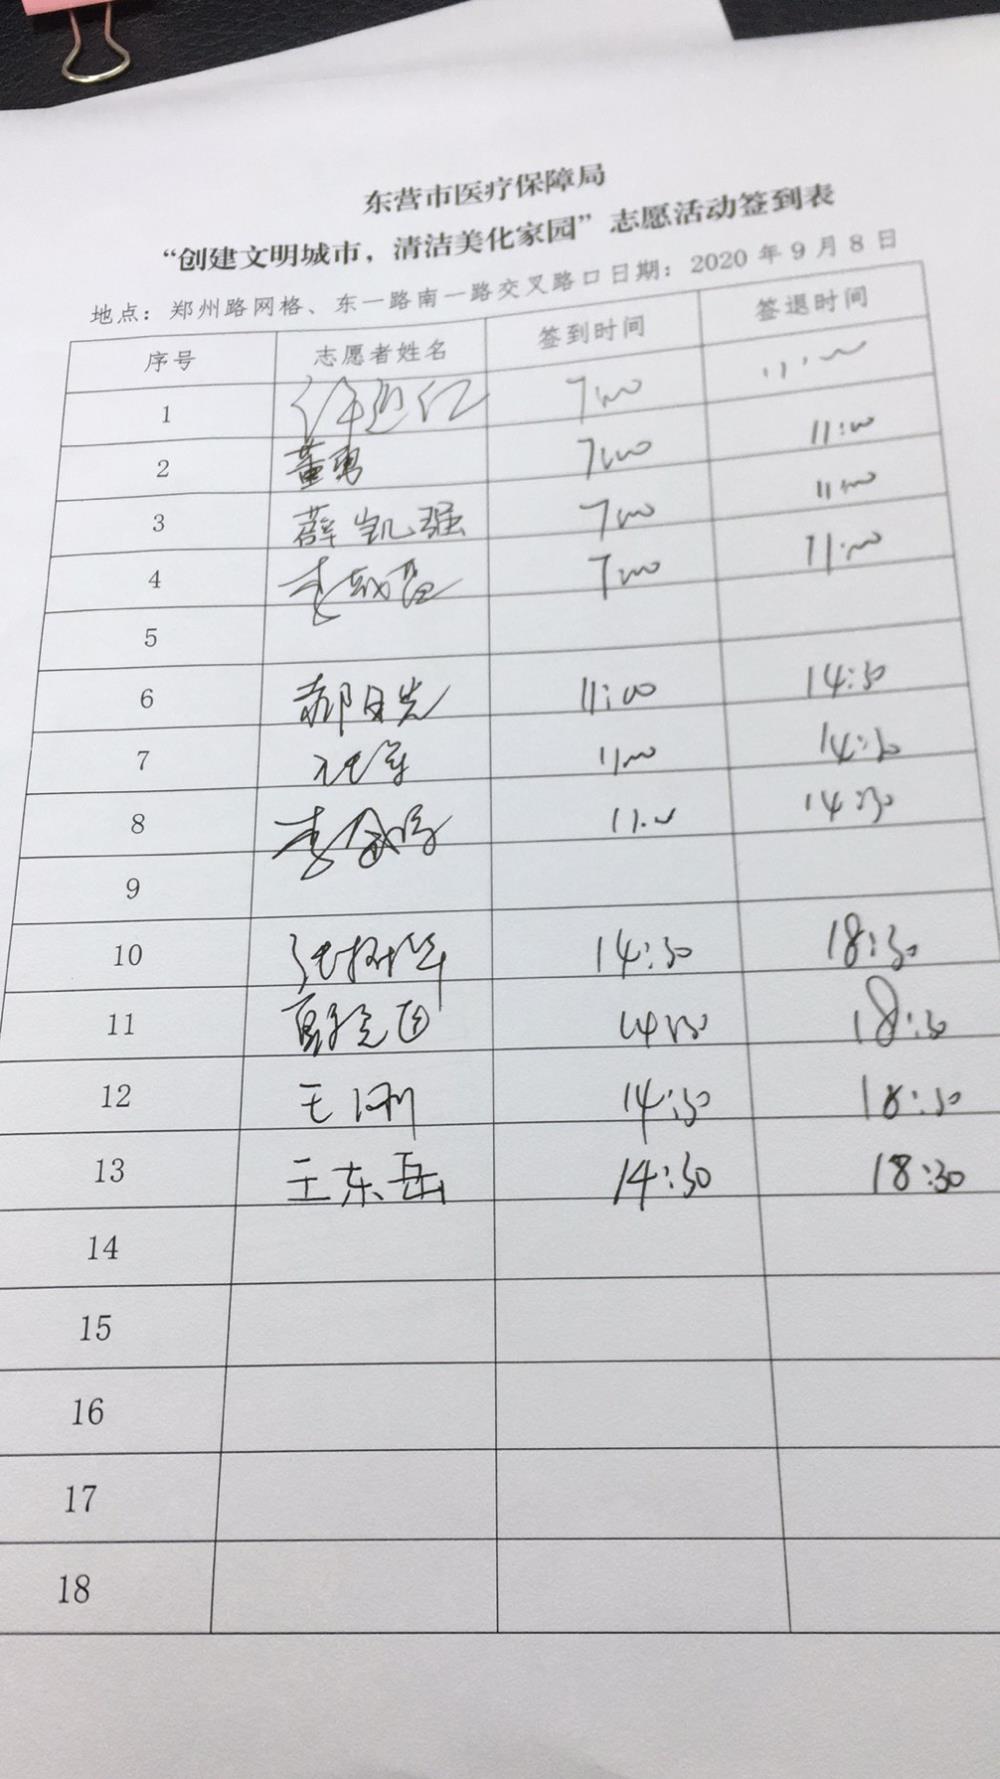 东营市医疗保障局
“创建文明城市，清洁美化家园”志愿活动签到表
地点：郑州路网格、东一路南一路交叉路口日期：2020 年 9 月 8 日
序号 志愿者姓名 签到时间 签退时间
1 7:00 11:00
2 董勇 7:00 11:00
3 薛凯强 7:00 11:00
4 7:00 11:00
5
6 郝日先 11:00 14:30
7 11:00 14:30
8 11:00 14:30
9
10 14:30 18:30
11 14:30 18:30
12 王刚 14:30 18:30
13 王东岳 14:30 18:30
14
15
16
17
18